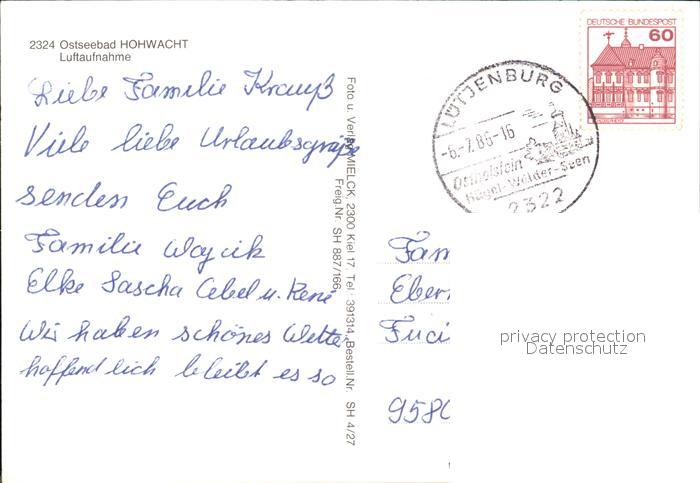 2324 Ostseebad HOHWACHT
Luftaufnahme
Liebe Familie Krauß
Viele liebe Urlaubsgrüße
senden Euch
Familie Wojcik
Elke Sascha u. René
Wir haben schönes Wetter,
hoffendlich bleibt es so
Foto u. Verlag MIELCK, 2300 Kiel 17, Tel. 391314, Bestell Nr. SH 4/27
Freig.Nr. SH 887/166
DEUTSCHE BUNDESPOST
60
LÜTJENBURG
-6.-7.86-16
Ostholstein
Hügel-Wälder-Seen
2322
Fam
Eber
Fuci
9580
privacy protection
Datenschutz